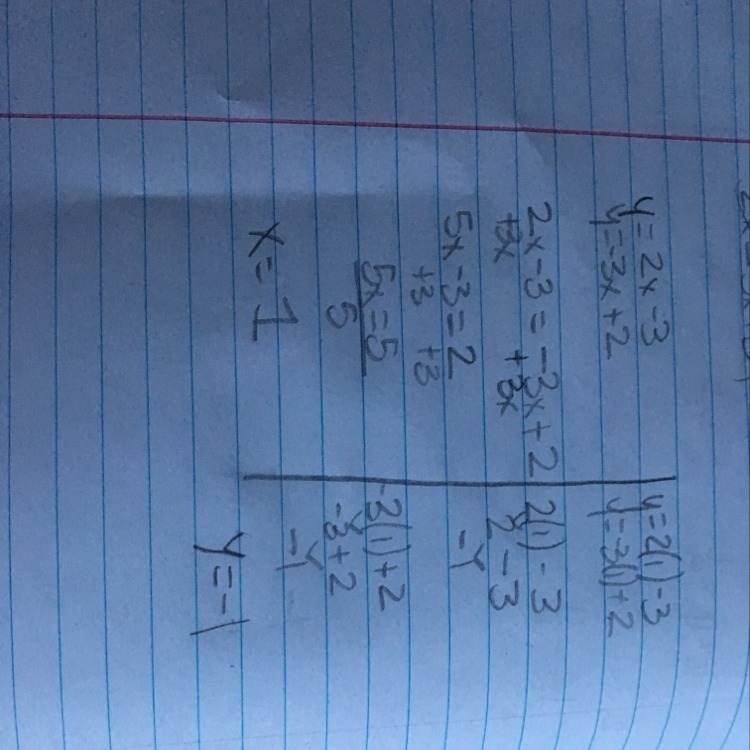 y = 2x - 3
y = -3x + 2
2x - 3 = -3x + 2
+3x +3x
5x - 3 = 2
+3 +3
5x = 5
5
x = 1
y = 2(1) - 3
y = -3(1) + 2
2(1) - 3
2 - 3
-1
-3(1) + 2
-3 + 2
-1
y = -1